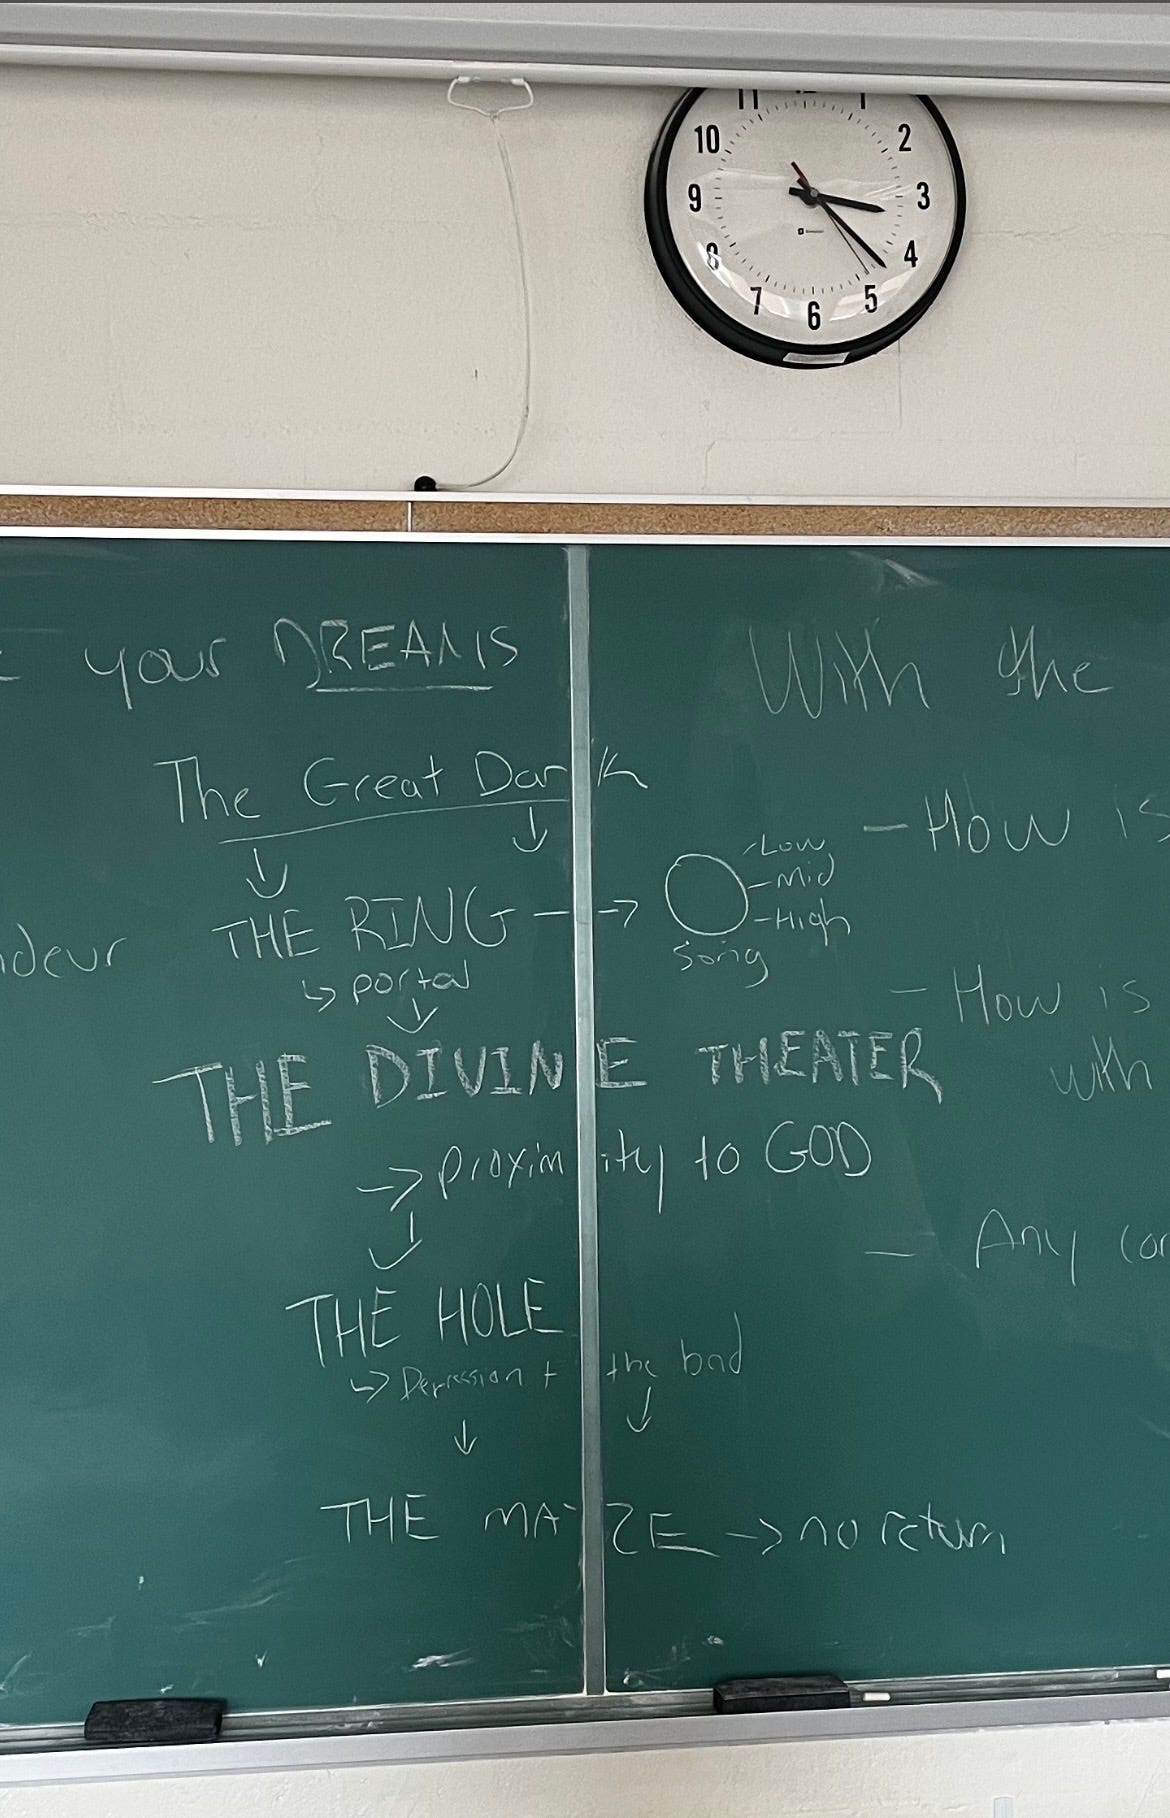 11 12 1
10 2
9 3
8 4
7 6 5
your DREAMS
The Great Dark
THE RING → Song
Low
Mid
High
↳ portal
THE DIVINE THEATER
→ proximity to GOD
THE HOLE
↳ Depression + the bad
THE MAZE → no return
With the
- How is
- How is
with
- Any